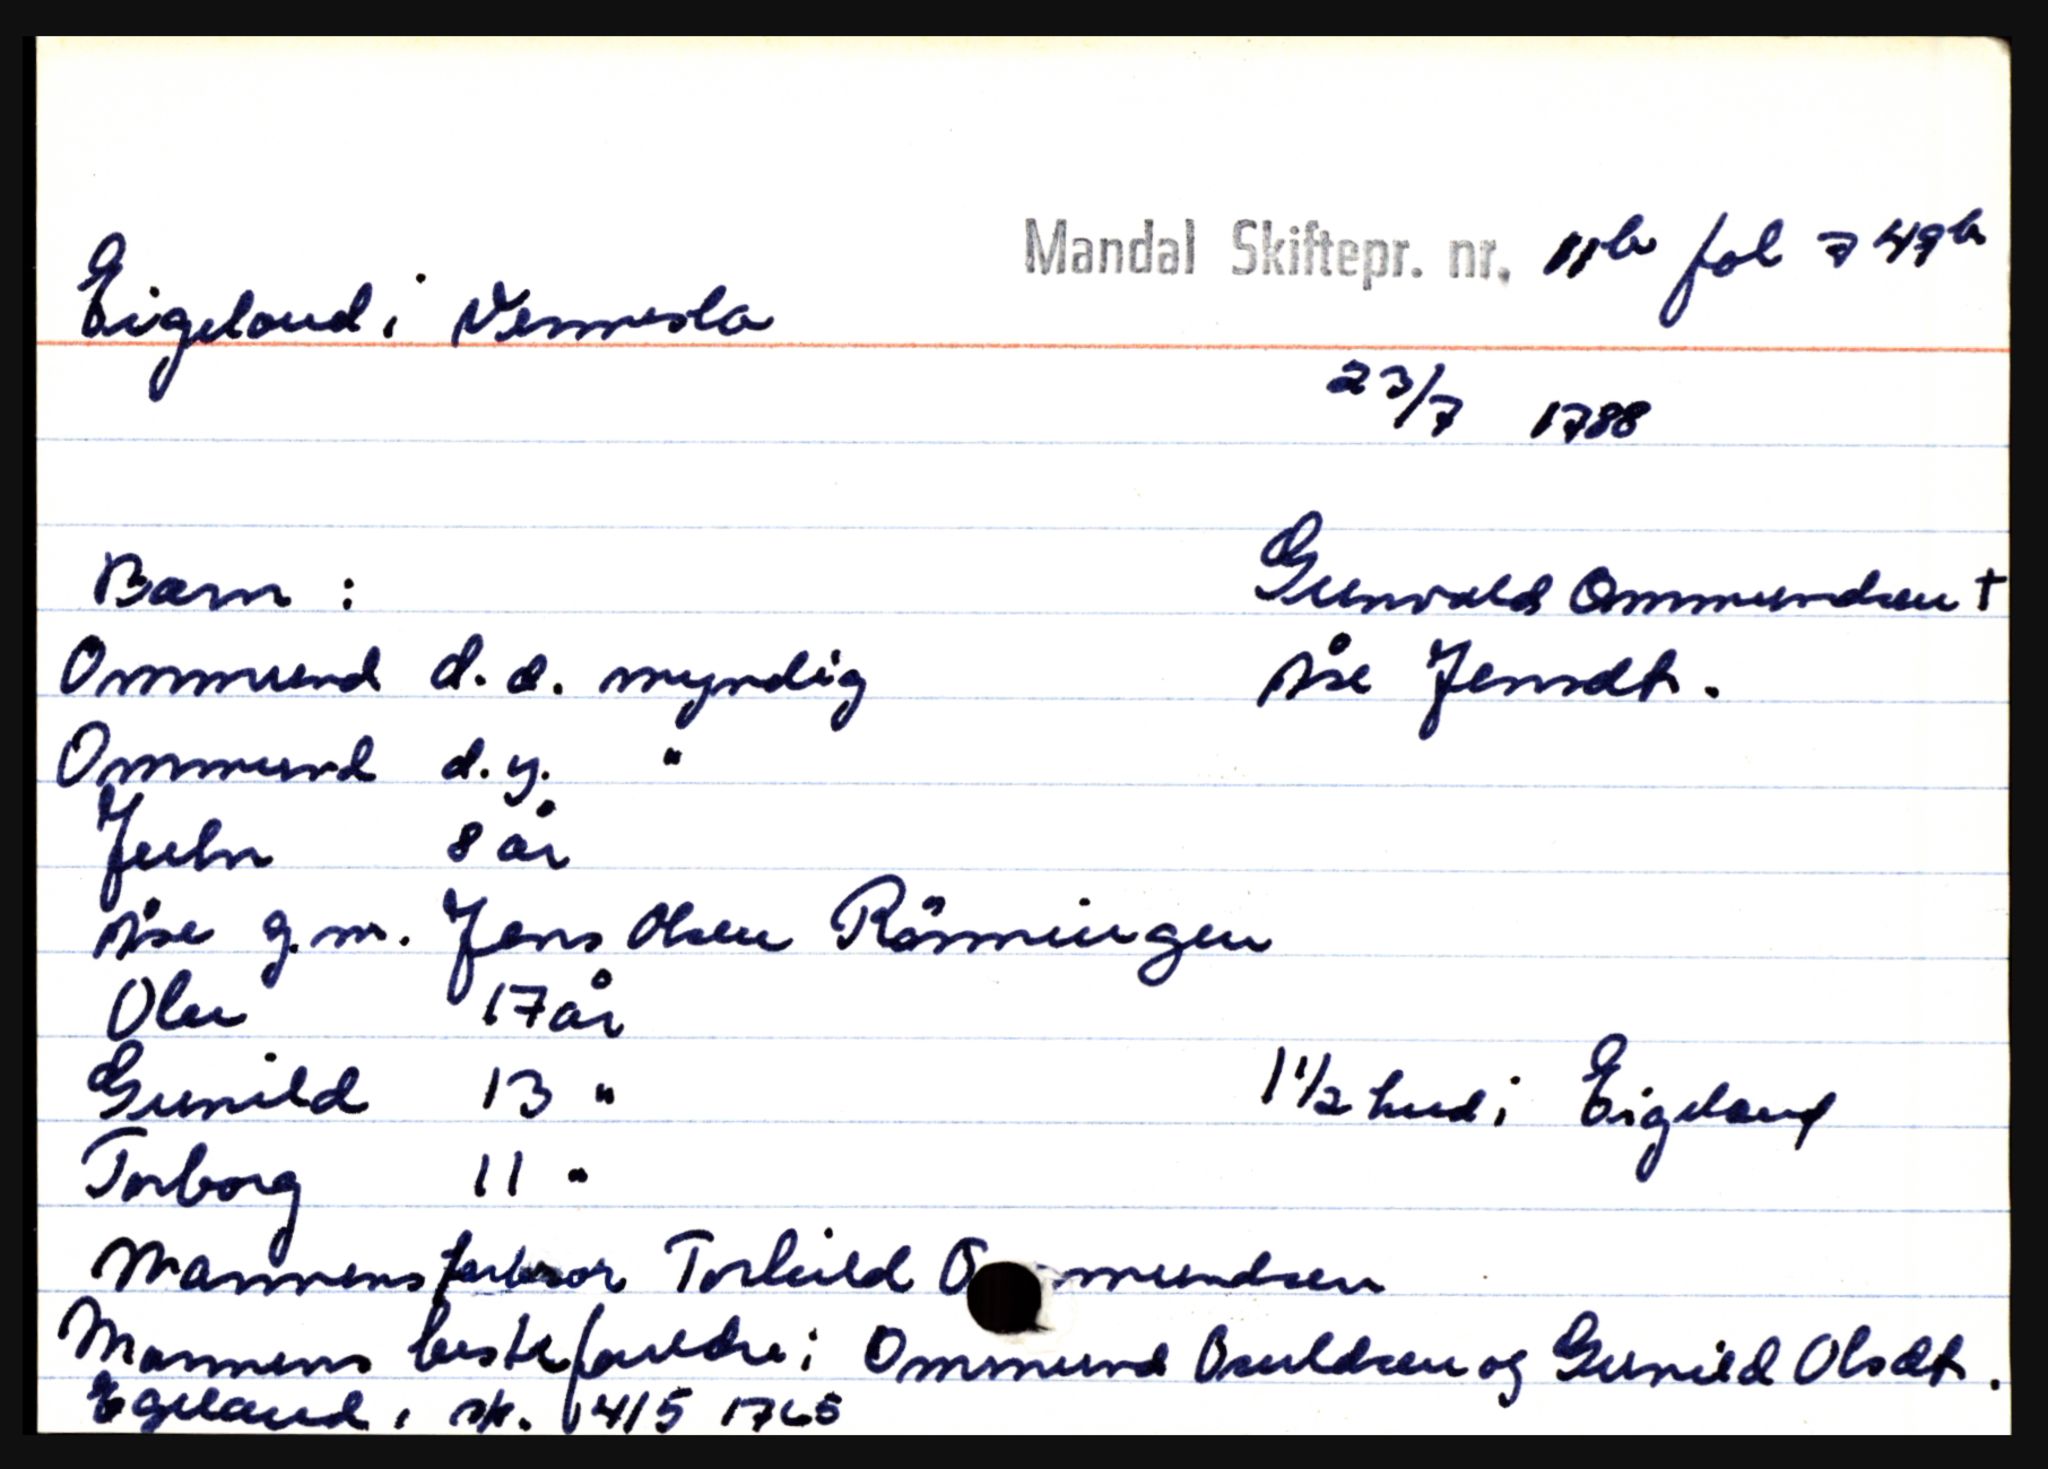 Mandal Skiftepr. nr. 11b fol 749b
Eigeland i Vennesla
23/7 1788
Barn : Gunvald Ommundsen †
Ommund d.e. myndig Åse Jensdt.
Ommund d.y. "
Juln 8 år
Åse g.m. Jens Olsen Rönningen
Olav 17 år
Gunild 13 " 1 1/2 hud i Eigeland
Torborg 11 "
Mannens farbror Torkild Ommundsen
Mannens besteforeldre: Ommund Osuldsen og Gunild Olsdt.
Egeland, sk. 14/5 1765